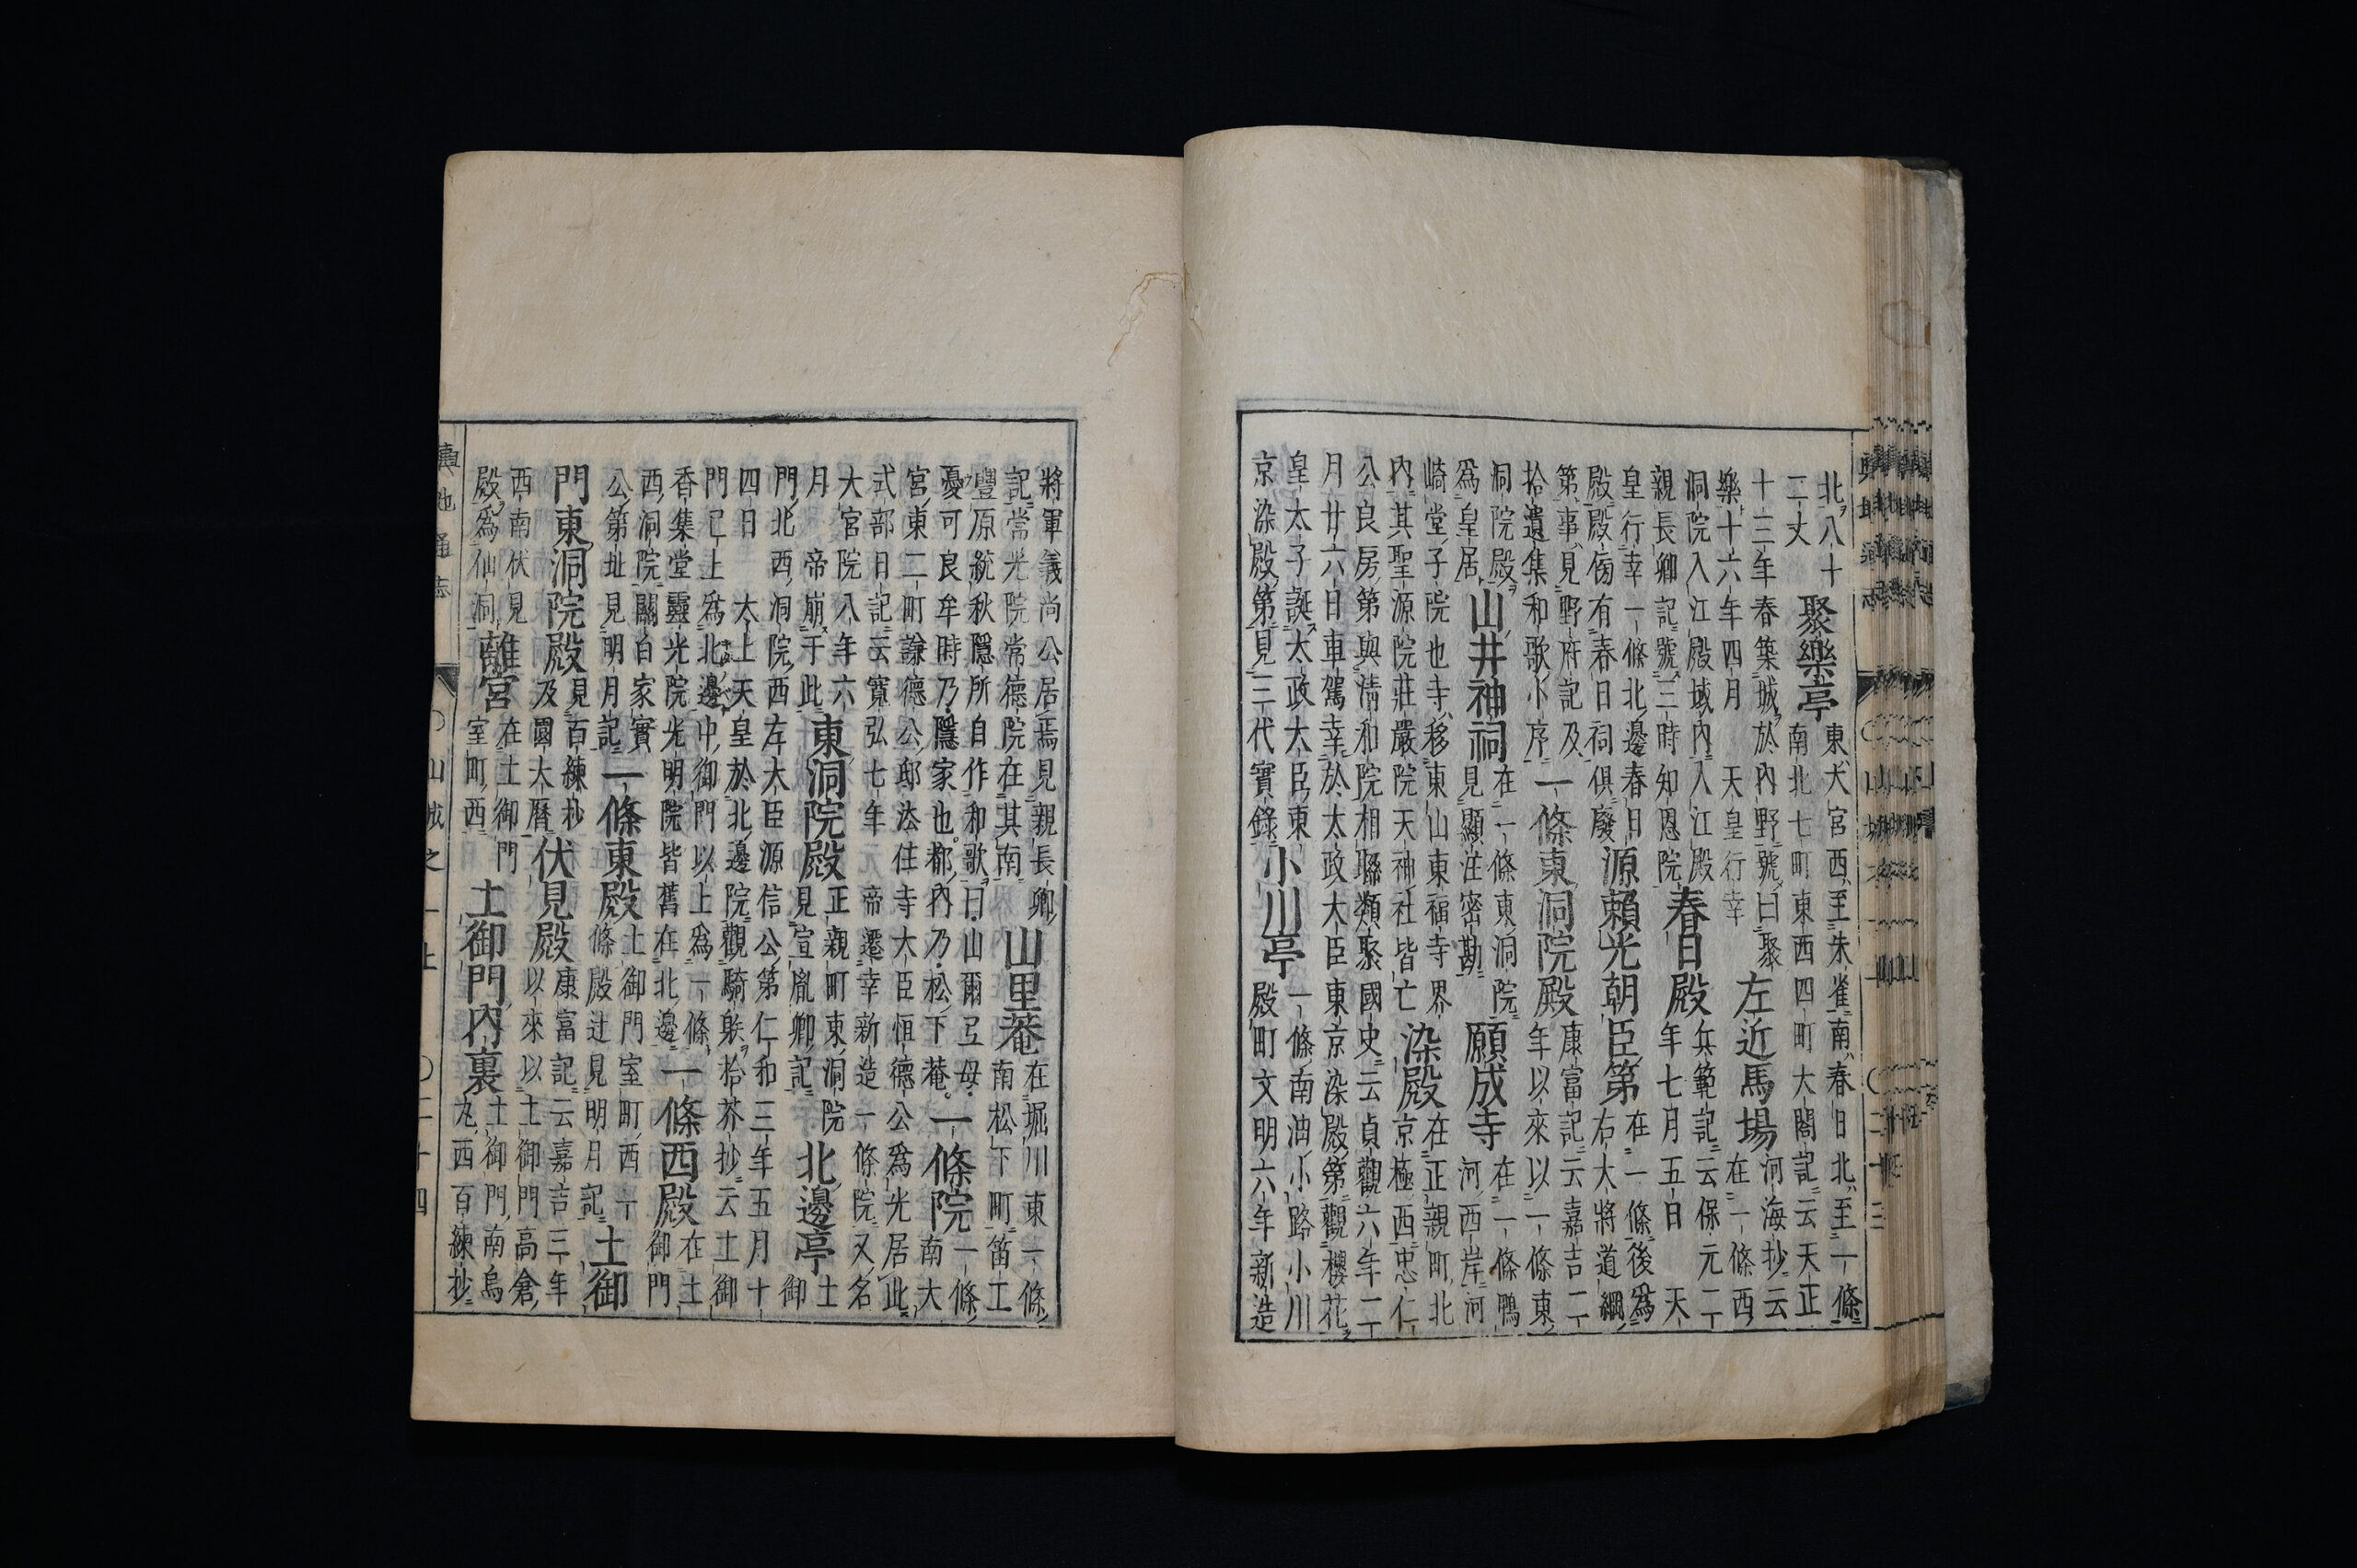 北八十
二丈
聚樂亭
東大宮西至朱雀南春日北至一條
南北七町東西四町大閤記云天正
十三年春築城於內野號曰聚
樂十六年四月 天皇行幸
左近馬場
河海抄云
在一條西
洞院入江殿城內入江殿
親長卿記號三時知恩院
春日殿
兵範記云保元二
年七月五日 天
皇行幸一條北邊春日
殿殿傍有春日祠俱廢
源賴光朝臣第
在一條後爲
右大將道綱
第事見野府記及
拾遺集和歌小序
一條東洞院殿
康富記云嘉吉二
年以來以一條東
洞院殿
爲皇居
山井神祠
在一條東洞院
見顯注密勘
願成寺
在一條鴨
河西岸河
崎堂子院也寺移東山東福寺界
內其聖源院莊嚴院天神社皆亡
染殿
在正親町北
京極西忠仁
公良房第與淸和院相聯類聚國史云貞觀六年二
月廿六日車駕幸於太政大臣東京染殿第觀櫻花
皇太子誕太政大臣東
京染殿第見三代實錄
小川亭
一條南油小路小川
殿町文明六年新造
將軍義尚公居焉見親長卿
記常光院常德院在其南
山里菴
在堀川東一條
南松下町笛工
豐原統秋隱所自作和歌曰山爾弖母
憂可良牟時乃隱家也都內乃松下菴
一條院
一條
南大
宮東二町謙德公邸法住寺大臣恒德公爲光居此
式部日記云寬弘七年 帝遷幸新造一條院又名
大宮院八年六
月 帝崩于此
東洞院殿
正親町東洞院
見宣胤卿記
北邊亭
土
御
門北西洞院西左大臣源信公第仁和三年五月十
四日 太上天皇於北邊院觀騎射拾芥抄云土御
門已上爲北邊中御門以上爲一條
香集堂靈光院光明院皆舊在北邊
一條西殿
在土
御門
西洞院關白家實
公第址見明月記
一條東殿
土御門室町西一
條殿辻見明月記
土御
門東洞院殿
見百練抄
及園太曆
伏見殿
康富記云嘉吉三年
以來以土御門高倉
西南伏見
殿爲仙洞
離宮
在土御門
室町西
土御門內裏
土御門南烏
丸西百練抄
輿地通志 〇山城之一上 〇二十四